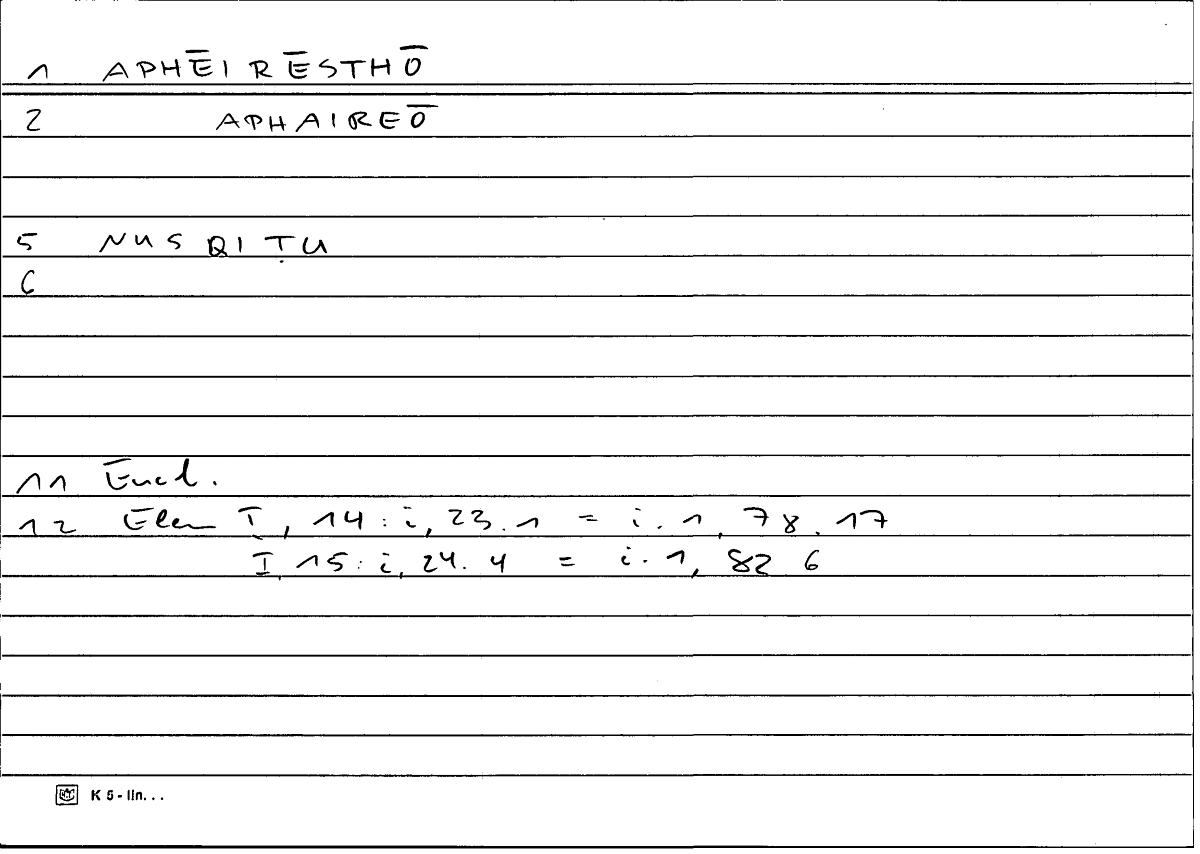 1 APHĒIRĒSTHŌ
2 APHAIREŌ
5 NUSQIṬU
6
11 Eucl.
12 Elem I, 14 : i, 23.1 = i.1, 78.17
I, 15 : i, 24.4 = i.1, 82 6
K 5 - lin...